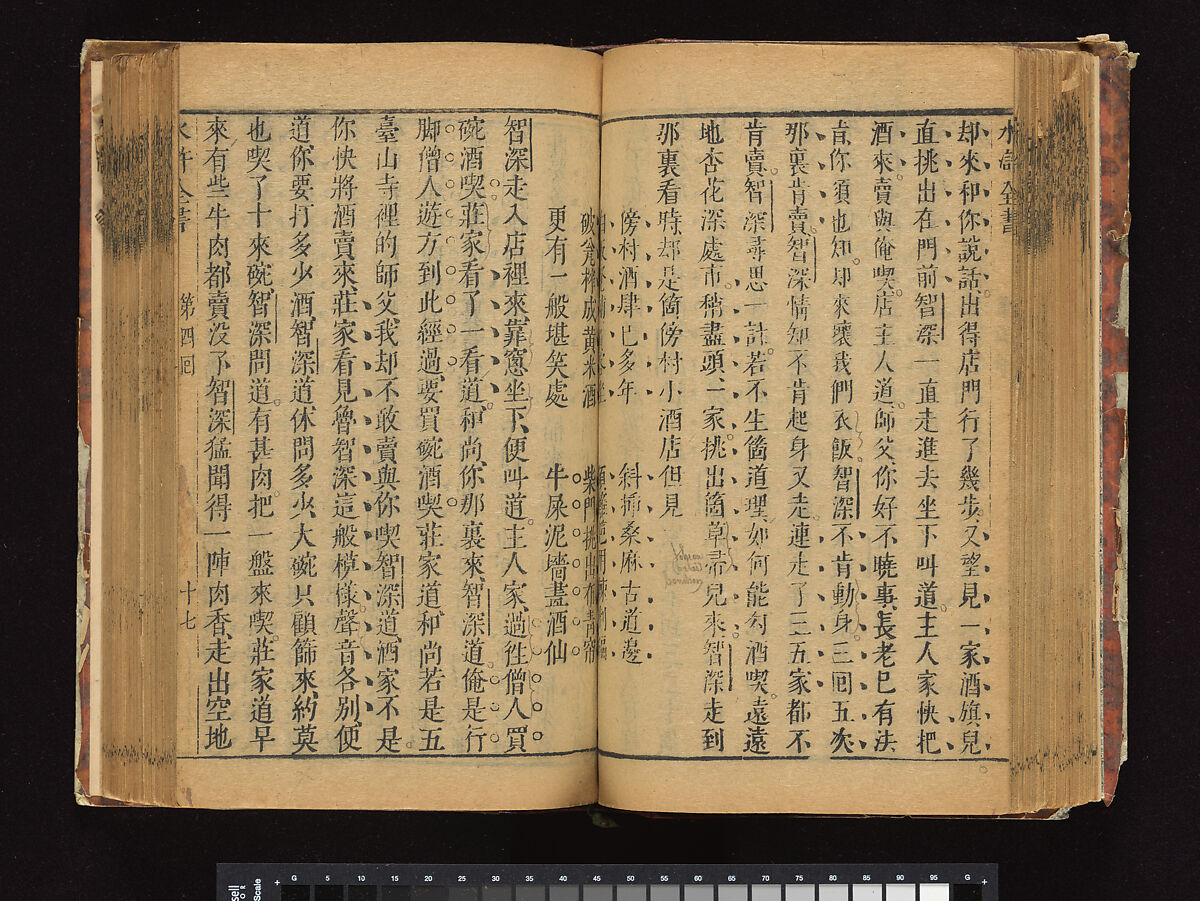 水滸全書
却來和你說話出得店門行了幾步又望見一家酒旗兒
直挑出在門前智深一直走進去坐下叫道主人家快把
酒來賣與俺喫店主人道師父你好不曉事長老已有法
旨你須也知却來壞我們衣飯智深不肯動身三回五次
那裏肯賣智深情知不肯起身又走連走了三五家都不
肯賣智深尋思一計若不生箇道理如何能勾酒喫遠遠
地杏花深處市稍盡頭一家挑出箇草帚兒來智深走到
那裏看時却是箇傍村小酒店但見
傍村酒肆已多年 斜揷桑麻古道邊
破瓮榨成黃米酒 柴門挑出布靑帘
更有一般堪笑處 牛屎泥墻畫酒仙
智深走入店裡來靠窻坐下便叫道主人家過徃僧人買
碗酒喫莊家看了一看道和尚你那裏來智深道俺是行
脚僧人遊方到此經過要買碗酒喫莊家道和尚若是五
臺山寺裡的師父我却不敢賣與你喫智深道洒家不是
你快將酒賣來莊家看見魯智深這般模樣聲音各別便
道你要打多少酒智深道休問多少大碗只顧篩來約莫
也喫了十來碗智深問道有甚肉把一盤來喫莊家道早
來有些牛肉都賣没了智深猛聞得一陣肉香走出空地
水滸全書 第四回 十七
G 5 10 15 20 25 30 35 40 45 50 55 60 65 70 75 80 85 90 95 G
Scale